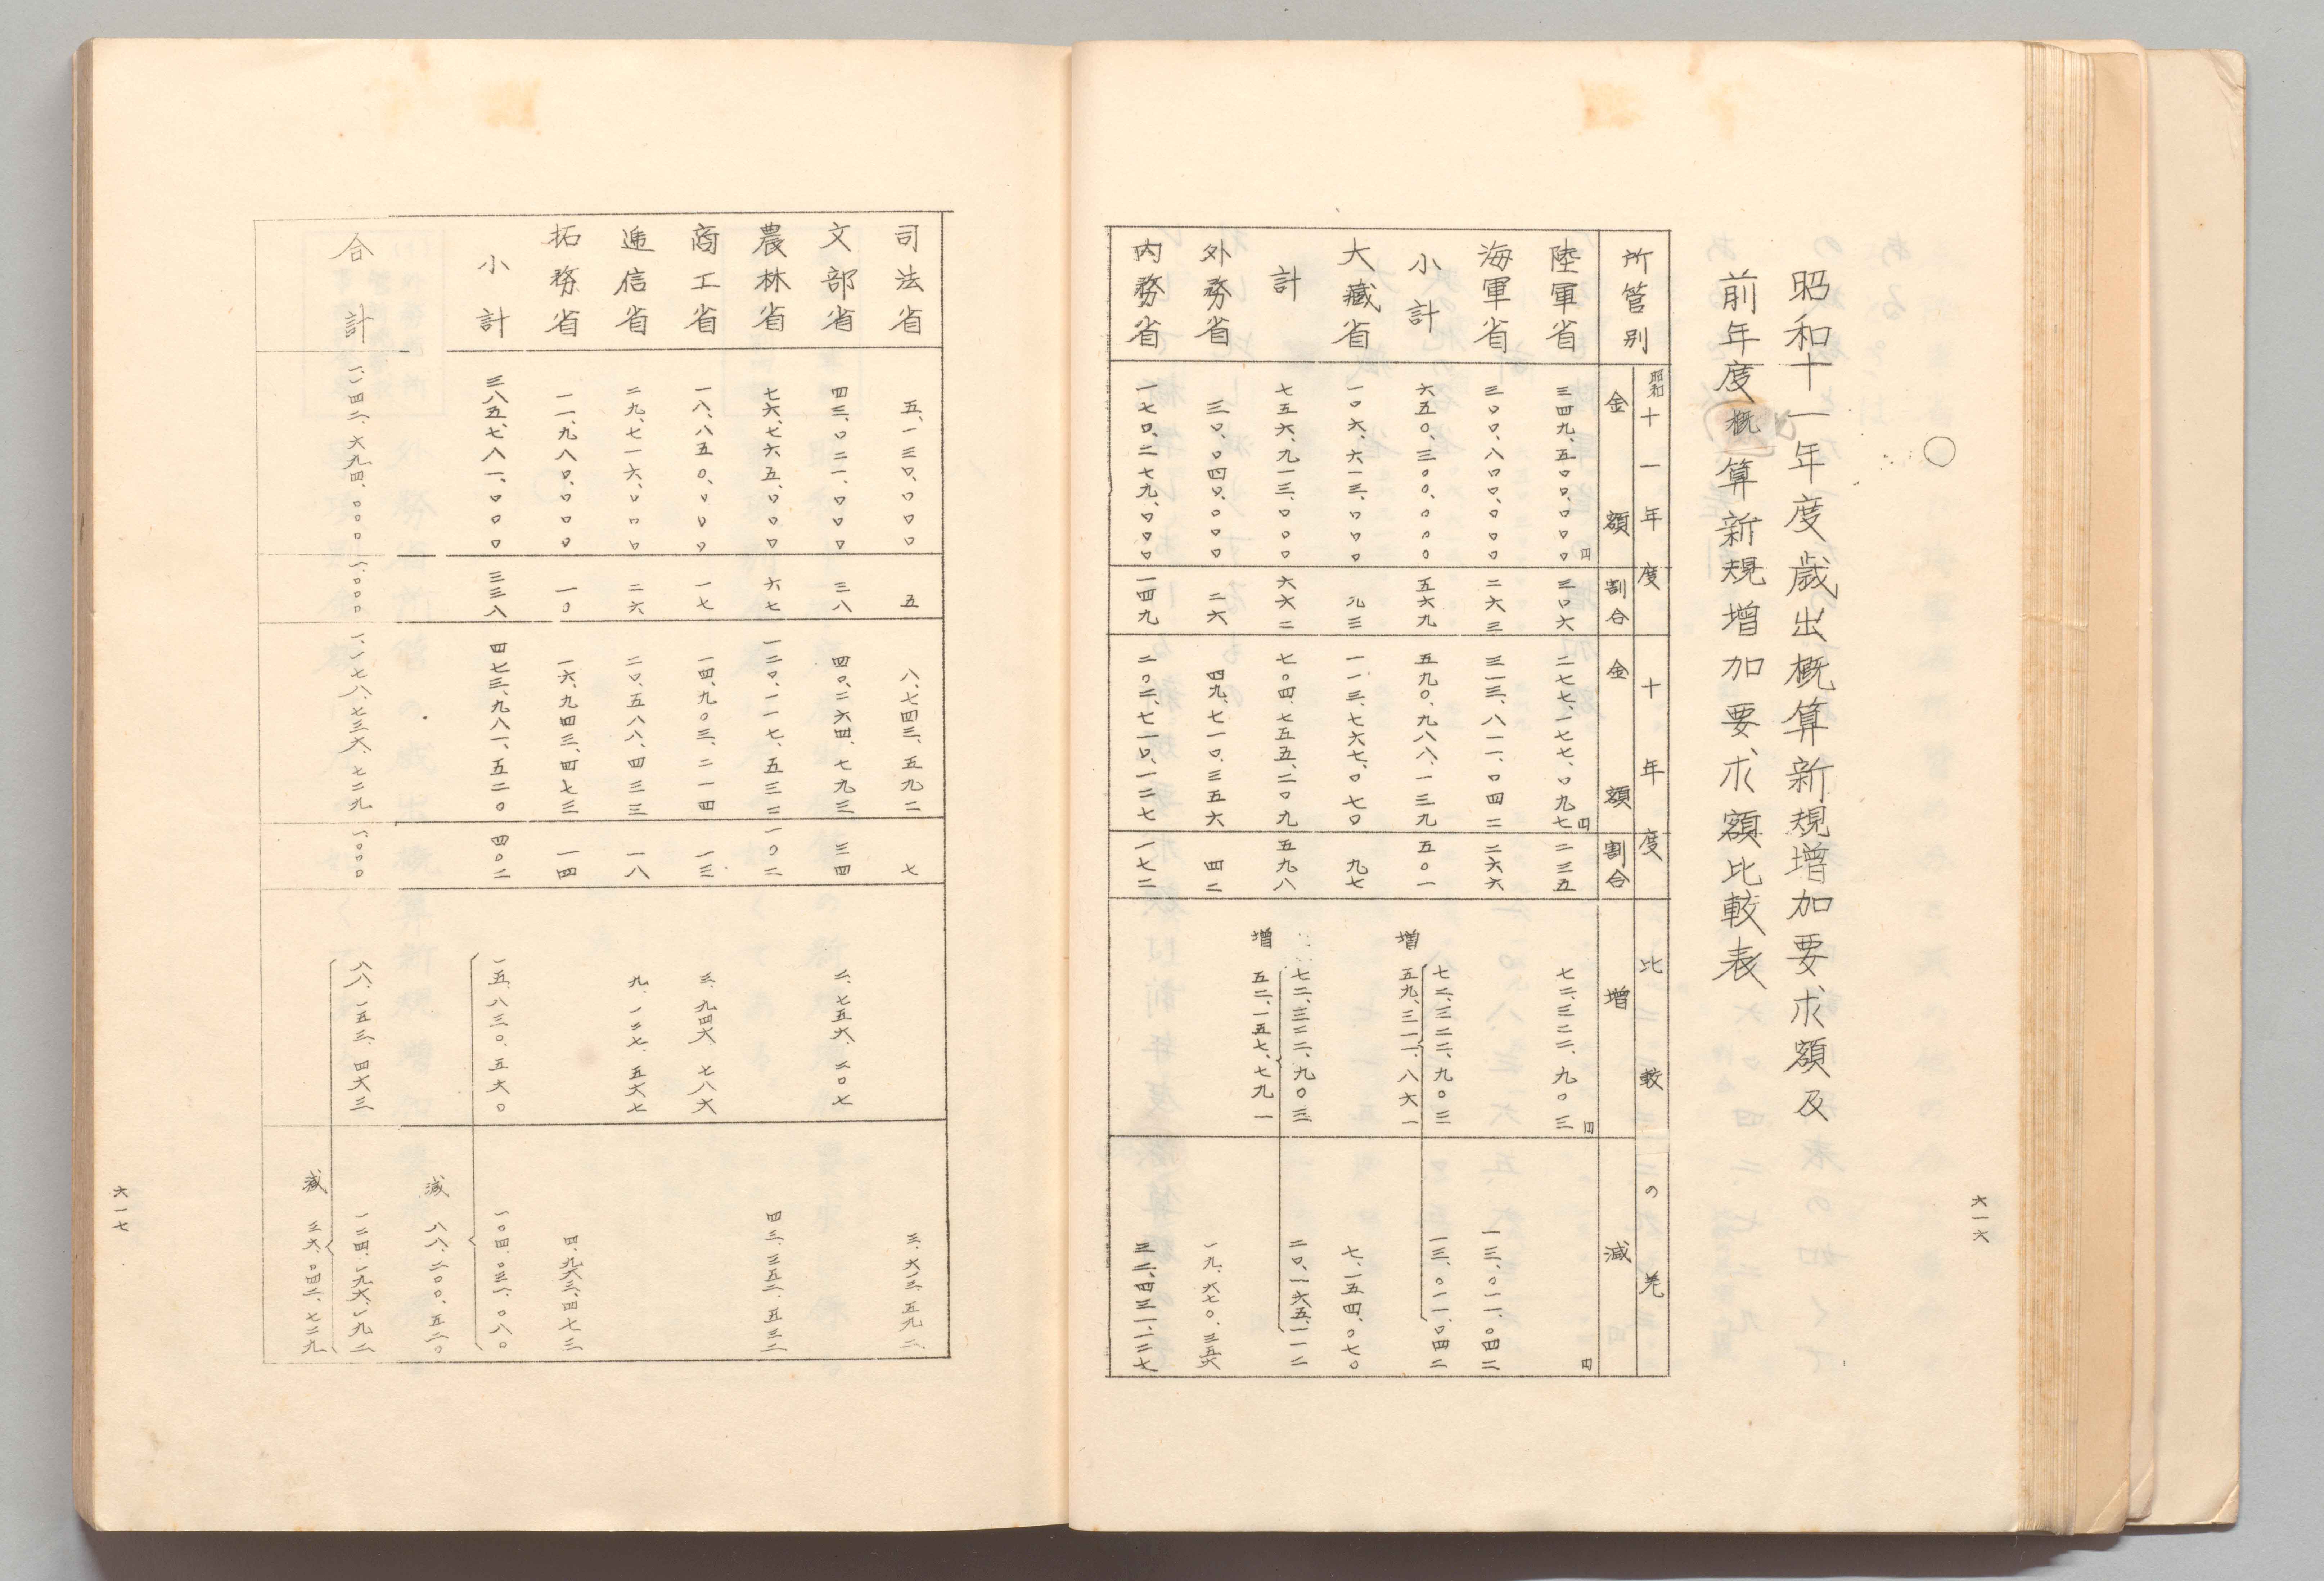 六一六
昭和十一年度歳出概算新規増加要求額及
前年度概算新規増加要求額比較表
所管別 昭和十一年度 十年度 比較の差
金額 割合 金額 割合 増 減
陸軍省 三四九、五〇〇、〇〇〇円 三〇六 二七七、一七七、〇九七円 二三五 七二、三二二、九〇三円 円
海軍省 三〇〇、八〇〇、〇〇〇 二六三 三一三、八一一、〇四二 二六六 一三、〇一一、〇四二
小計 六五〇、三〇〇、〇〇〇 五六九 五九〇、九八八、一三九 五〇一 七二、三二二、九〇三 一三、〇一一、〇四二
増 五九、三一一、八六一
大藏省 一〇六、六一三、〇〇〇 九三 一一三、七六七、〇七〇 九七 七、一五四、〇七〇
計 七五六、九一三、〇〇〇 六六二 七〇四、七五五、二〇九 五九八 七二、三二二、九〇三 二〇、一六五、一一二
増 五二、一五七、七九一
外務省 三〇、〇四〇、〇〇〇 二六 四九、七一〇、三五六 四二 一九、六七〇、三五六
内務省 一七〇、二七九、〇〇〇 一四九 二〇二、七一〇、一二七 一七二 三二、四三一、一二七
司法省 五、一三〇、〇〇〇 五 八、七四三、五九二 七 三、六一三、五九二
文部省 四三、〇二一、〇〇〇 三八 四〇、二六四、七九三 三四 二、七五六、二〇七
農林省 七六、七六五、〇〇〇 六七 一二〇、一一七、五三二 一〇二 四三、三五二、五三二
商工省 一八、八五〇、〇〇〇 一七 一四、九〇三、二一四 一三 三、九四六、七八六
逓信省 二九、七一六、〇〇〇 二六 二〇、五八八、四三三 一八 九、一二七、五六七
拓務省 一一、九八〇、〇〇〇 一〇 一六、九四三、四七三 一四 四、九六三、四七三
小計 三八五、七八一、〇〇〇 三三八 四七三、九八一、五二〇 四〇二 一五、八三〇、五六〇 一〇四、〇三一、〇八〇
減 八八、二〇〇、五二〇
合計 一、一四二、六九四、〇〇〇 一、〇〇〇 一、一七八、七三六、七二九 一、〇〇〇 八八、一五三、四六三 一二四、一九六、一九二
減 三六、〇四二、七二九
六一七